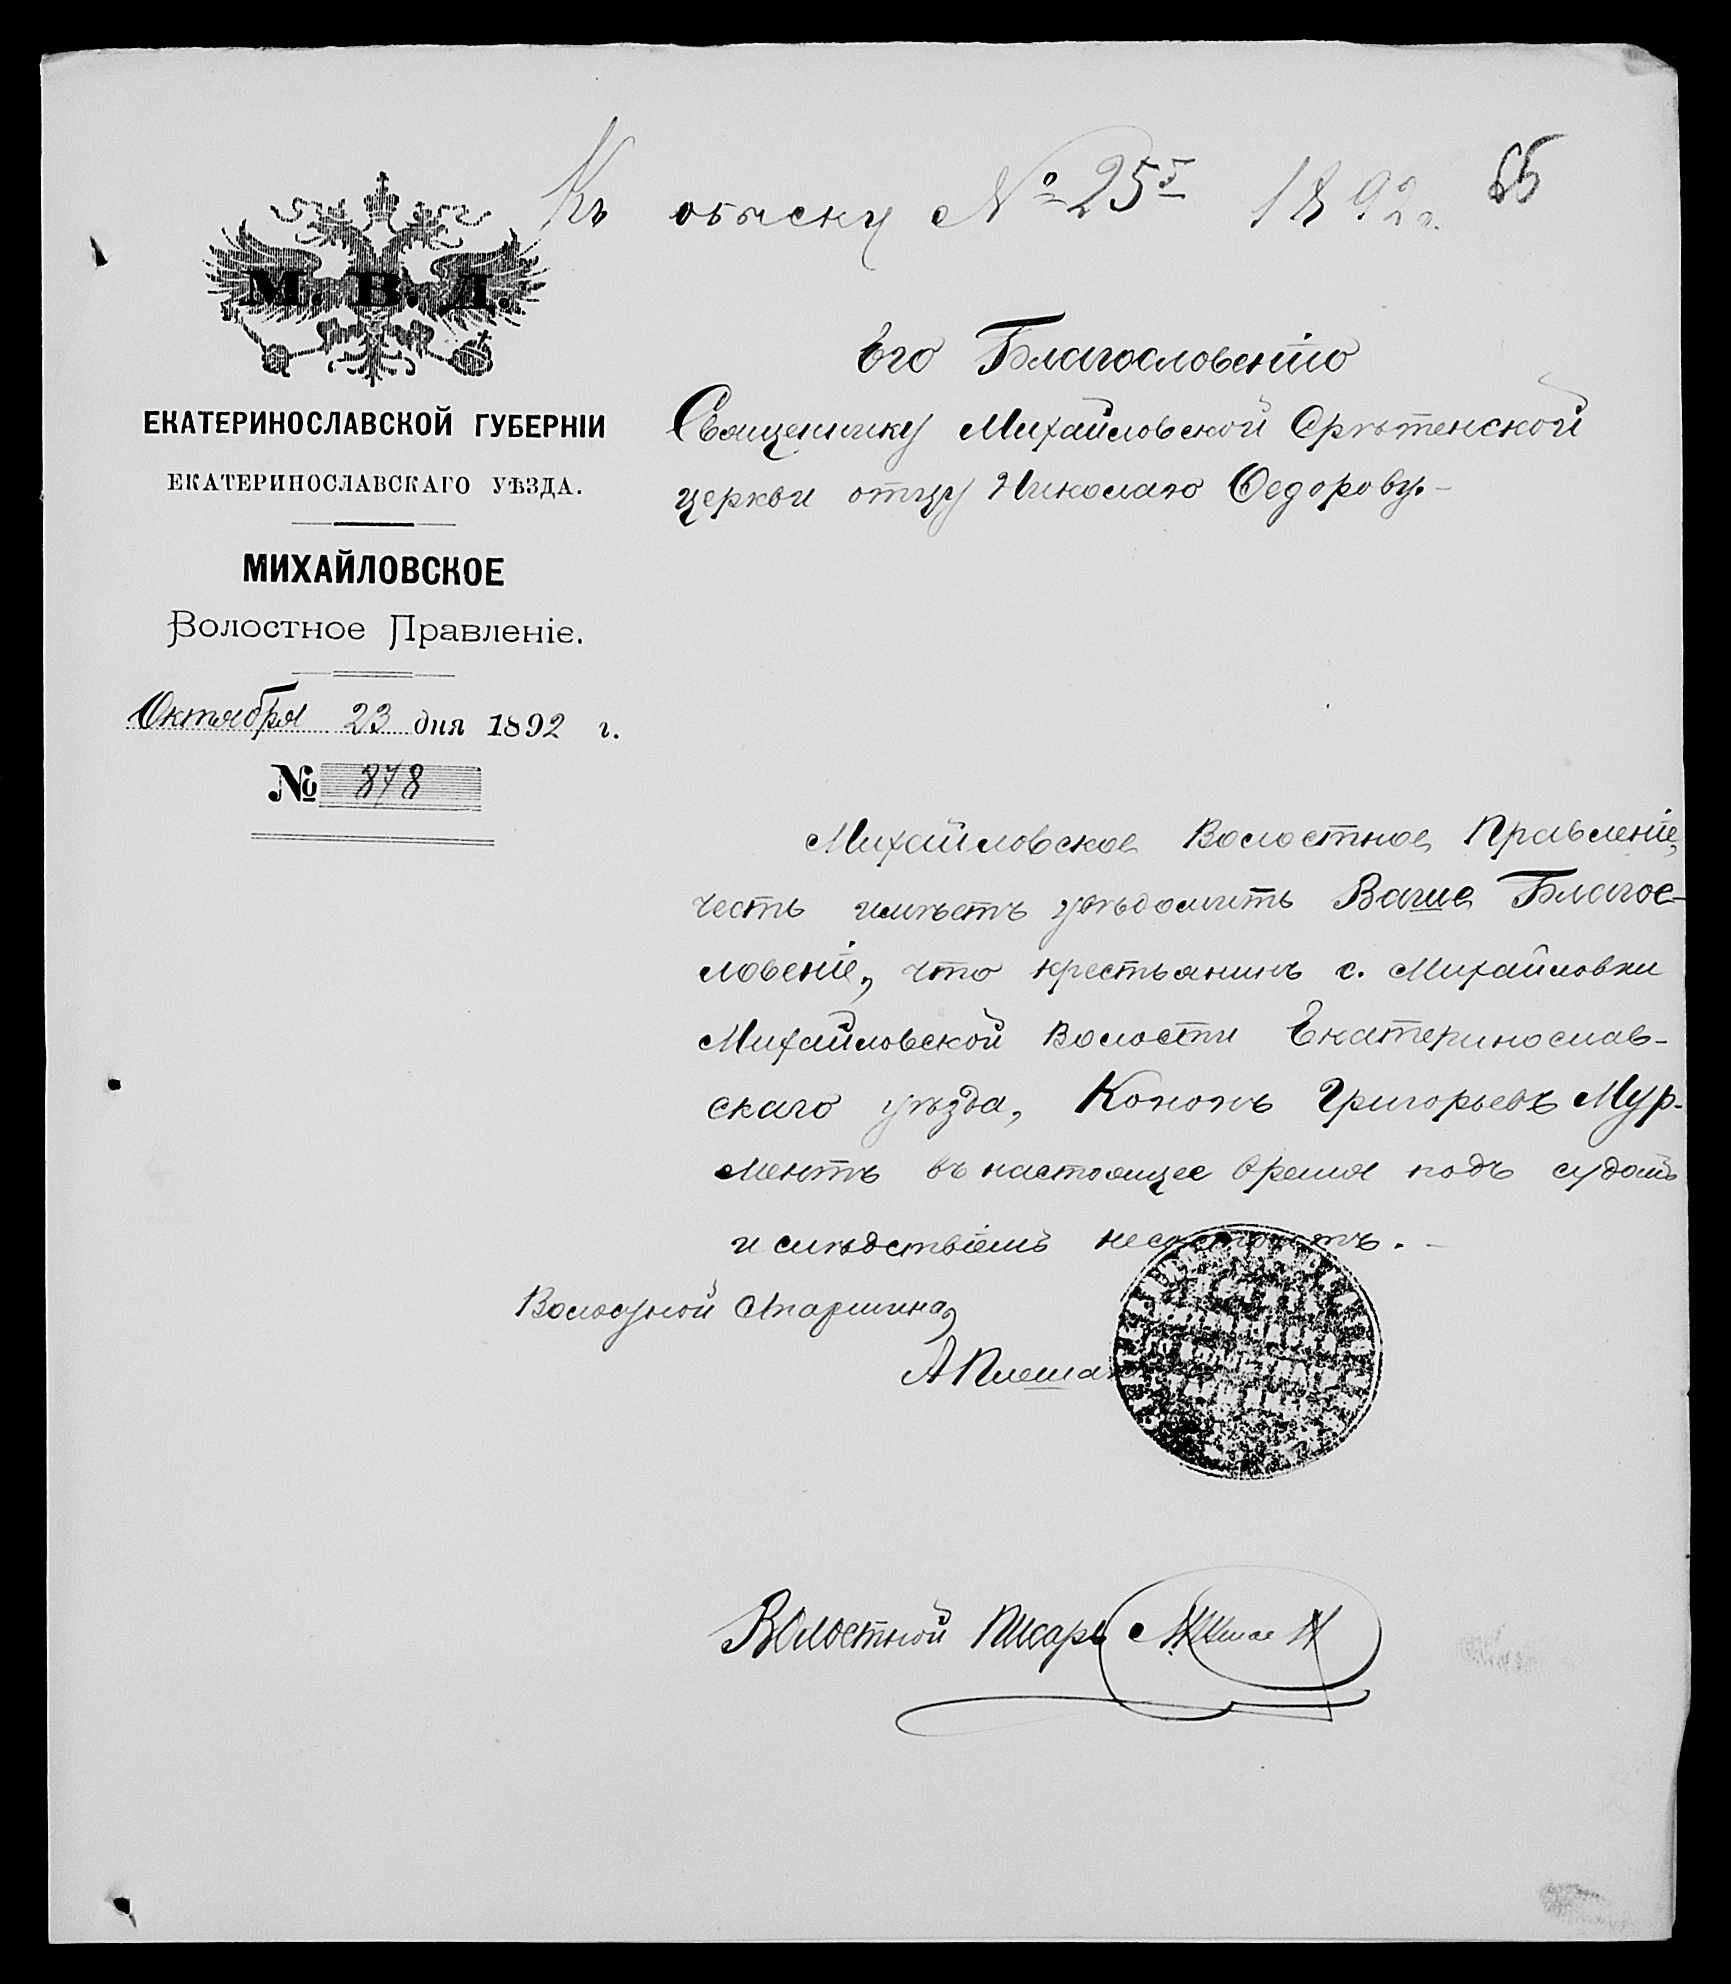 Къ обыску № 25й 1892 г.
М. В. Д.
ЕКАТЕРИНОСЛАВСКОЙ ГУБЕРНІИ
ЕКАТЕРИНОСЛАВСКАГО УѢЗДА.
МИХАЙЛОВСКОЕ
Волостное Правленіе.
Октября 23 дня 1892 г.
№ 878
Его Благословенію
Священнику Михайловской Срѣтенской
церкви отцу Николаю Ѳедорову.-
Михайловское Волостное Правленіе,
честь имѣетъ увѣдомить Ваше Благос-
ловеніе, что крестьянинъ с. Михайловки
Михайловской Волости Екатеринослав-
скаго уѣзда, Кононъ Григорьевъ Мур-
ментъ въ настоящее время подъ судомъ
и слѣдствіемъ несостоитъ.-
Волосной Старшина,
Волостной Писарь